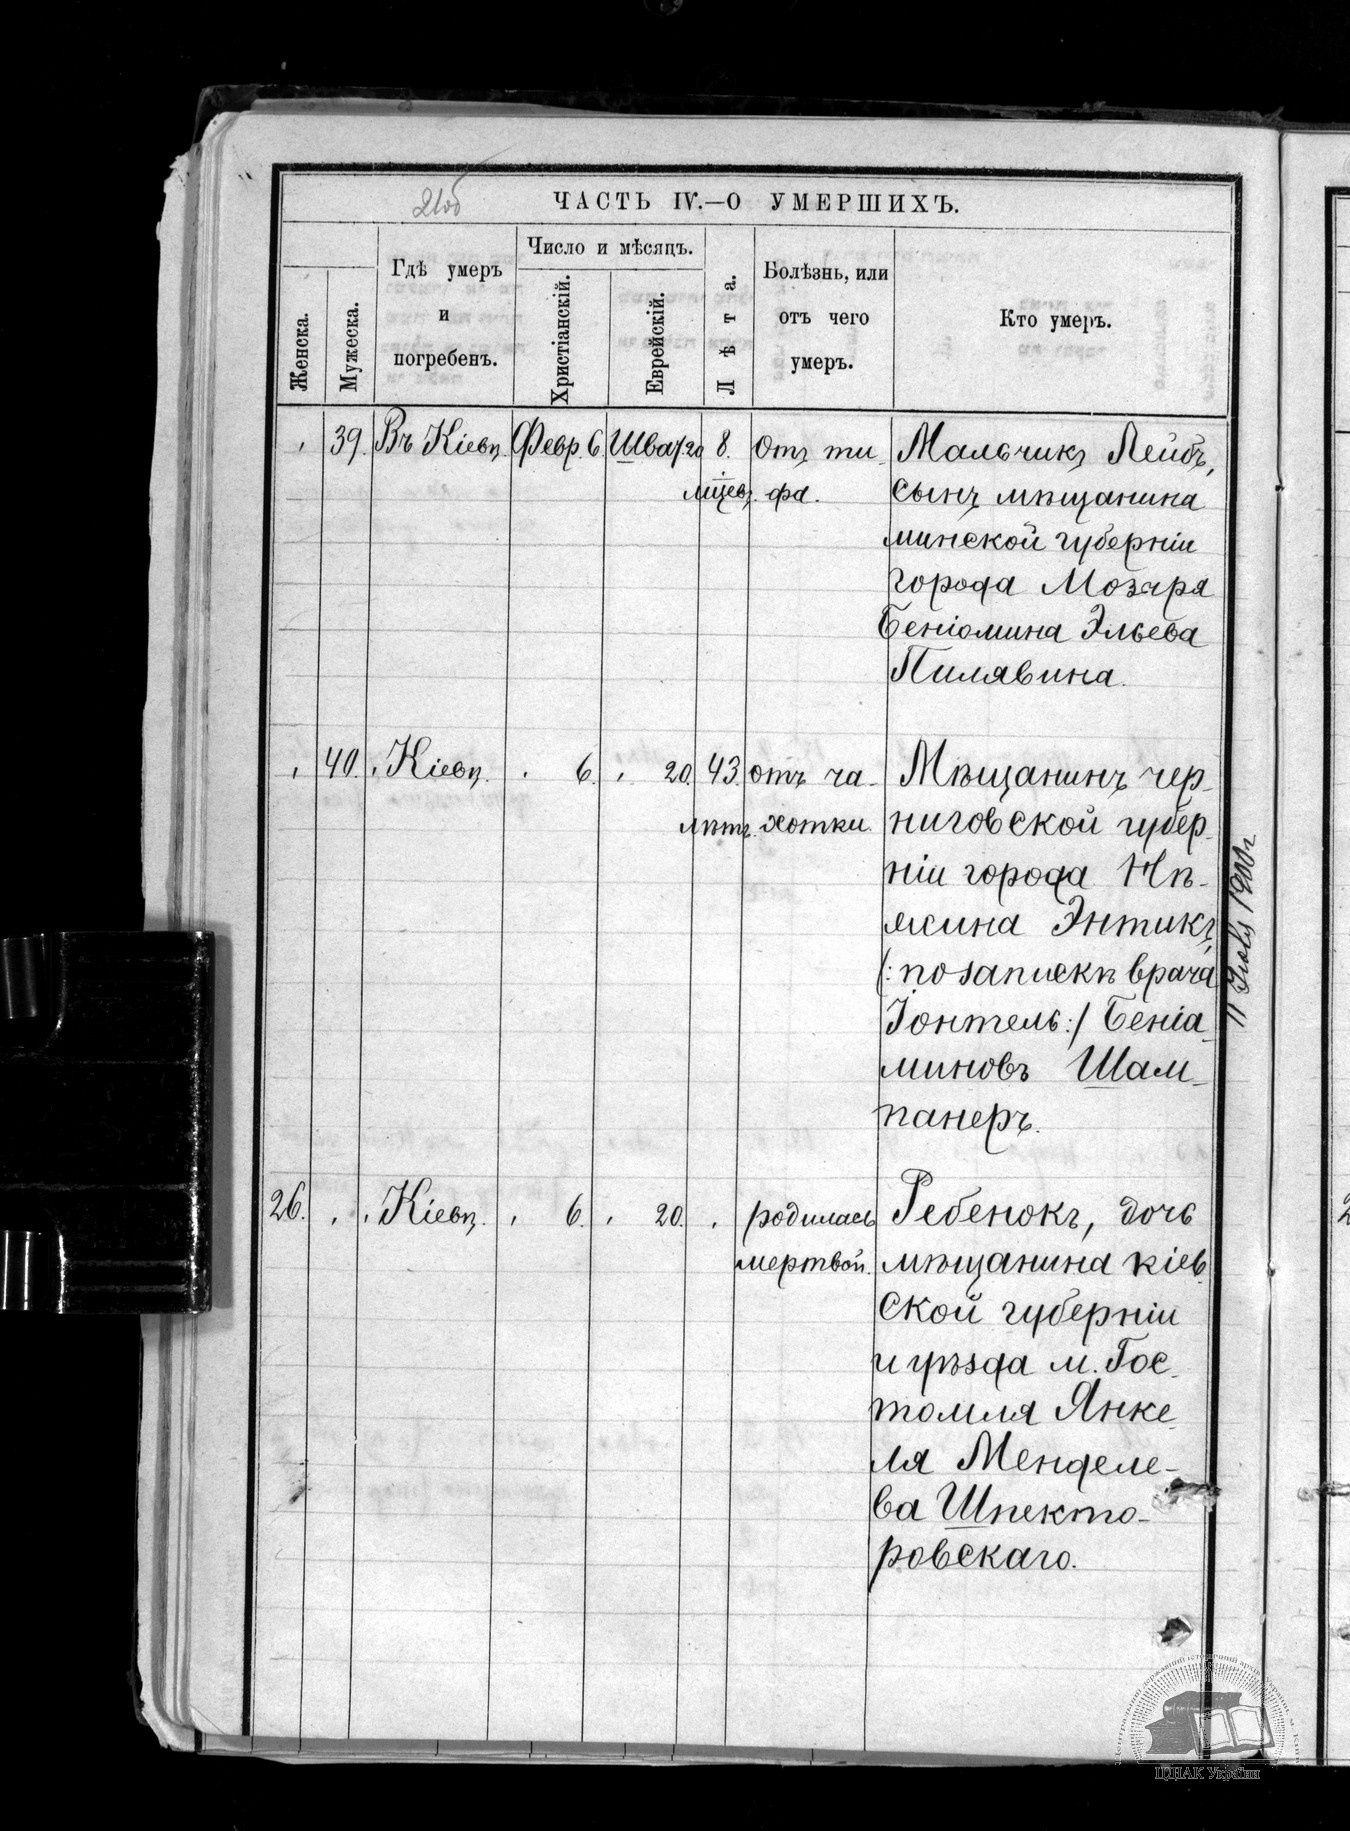 21об
ЧАСТЬ IV.—О УМЕРШИХЪ.
Женска.
Мужеска.
Гдѣ умеръ
и
погребенъ.
Число и мѣсяцъ.
Христіанскій.
Еврейскій.
Лѣта.
Болѣзнь, или
отъ чего
умеръ.
Кто умеръ.
39. Въ Кіевѣ. Февр. 6. Шват 20 8. отъ ти- Мальчикъ Лейбъ,
мѣсяц. фа. сынъ мѣщанина
минской губерніи
города Мозыря
Беніомина Эльева
Пилявина.
40. Кіевѣ. 6. 20. 43. отъ ча- Мѣщанинъ чер-
лѣтъ. хотки. ниговской губер-
ніи города Нѣ-
жина Энтикъ
(: по запискѣ врача
Іонтель:) Беніа-
миновъ Шам-
панеръ.
11 Іюля 1900 г
26. Кіевѣ. 6. 20. родилась Ребенокъ, дочь
мертвой. мѣщанина кіев-
ской губерніи
и уѣзда м. Гос-
томля Янке-
ля Менделе-
ва Шпекто-
ровскаго.
ЦДІАК України